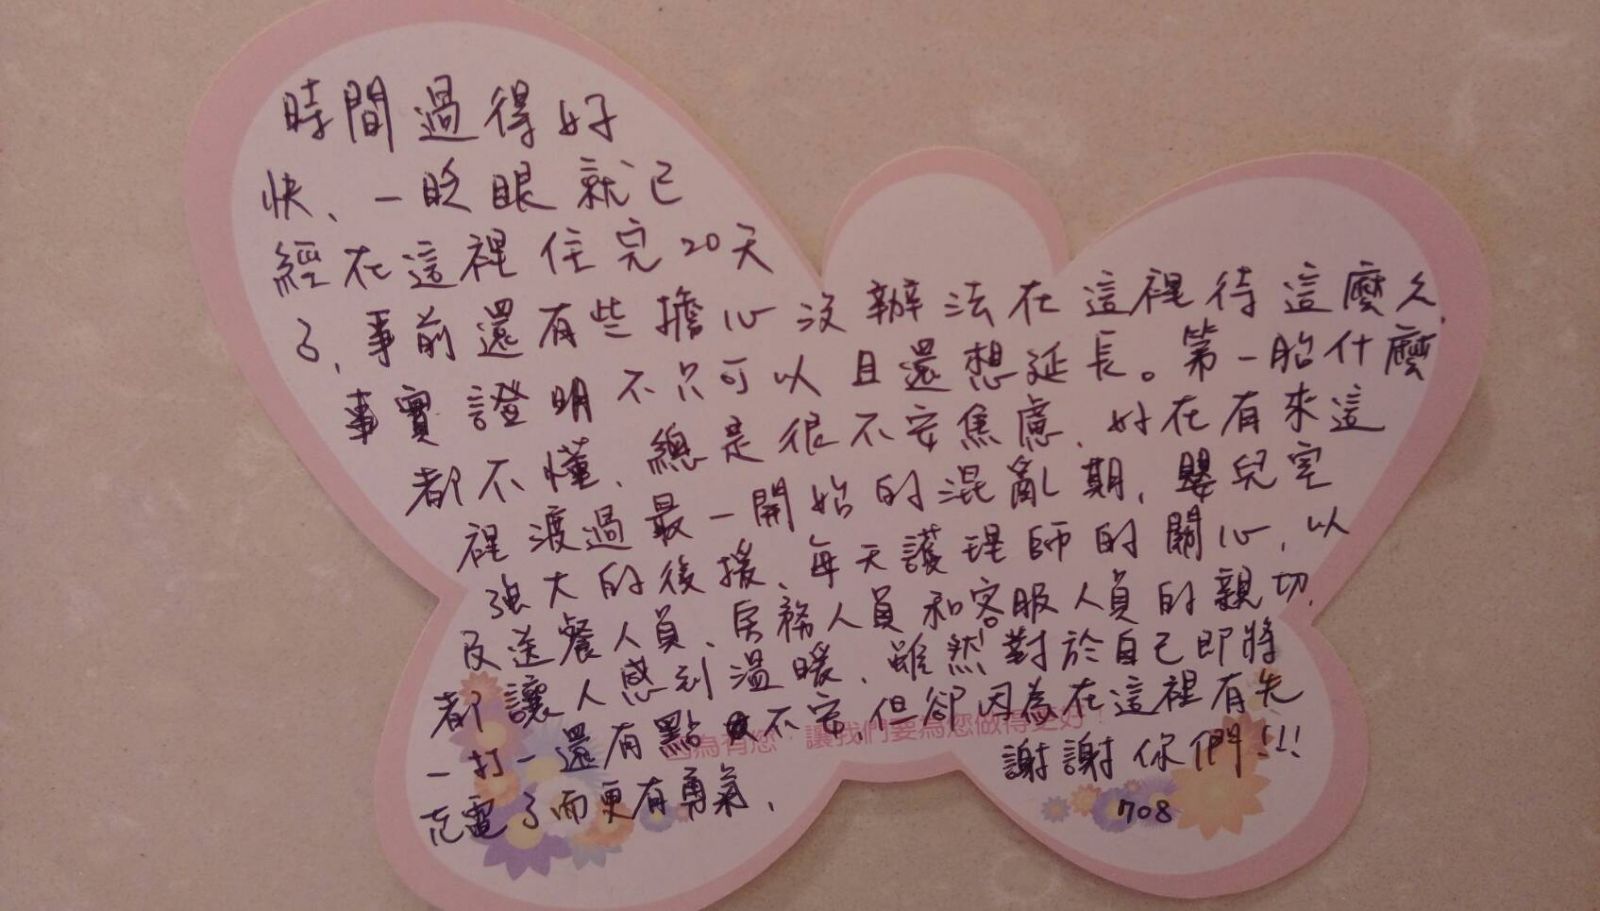 時間過得好
快、一眨眼就已
經在這裡住完20天
了，事前還有些擔心沒辦法在這裡待這麼久，
事實證明不只可以且還想延長。第一胎什麼
都不懂、總是很不安焦慮，好在有來這
裡渡過最一開始的混亂期，嬰兒室
強大的後援、每天護理師的關心，以
及送餐人員、房務人員和客服人員的親切，
都讓人感到溫暖，雖然對於自己即將
一打一還有點不安，但卻因為在這裡有先
充電了而更有勇氣，
謝謝你們!!!
708
因為有您，讓我們要為您做得更好！